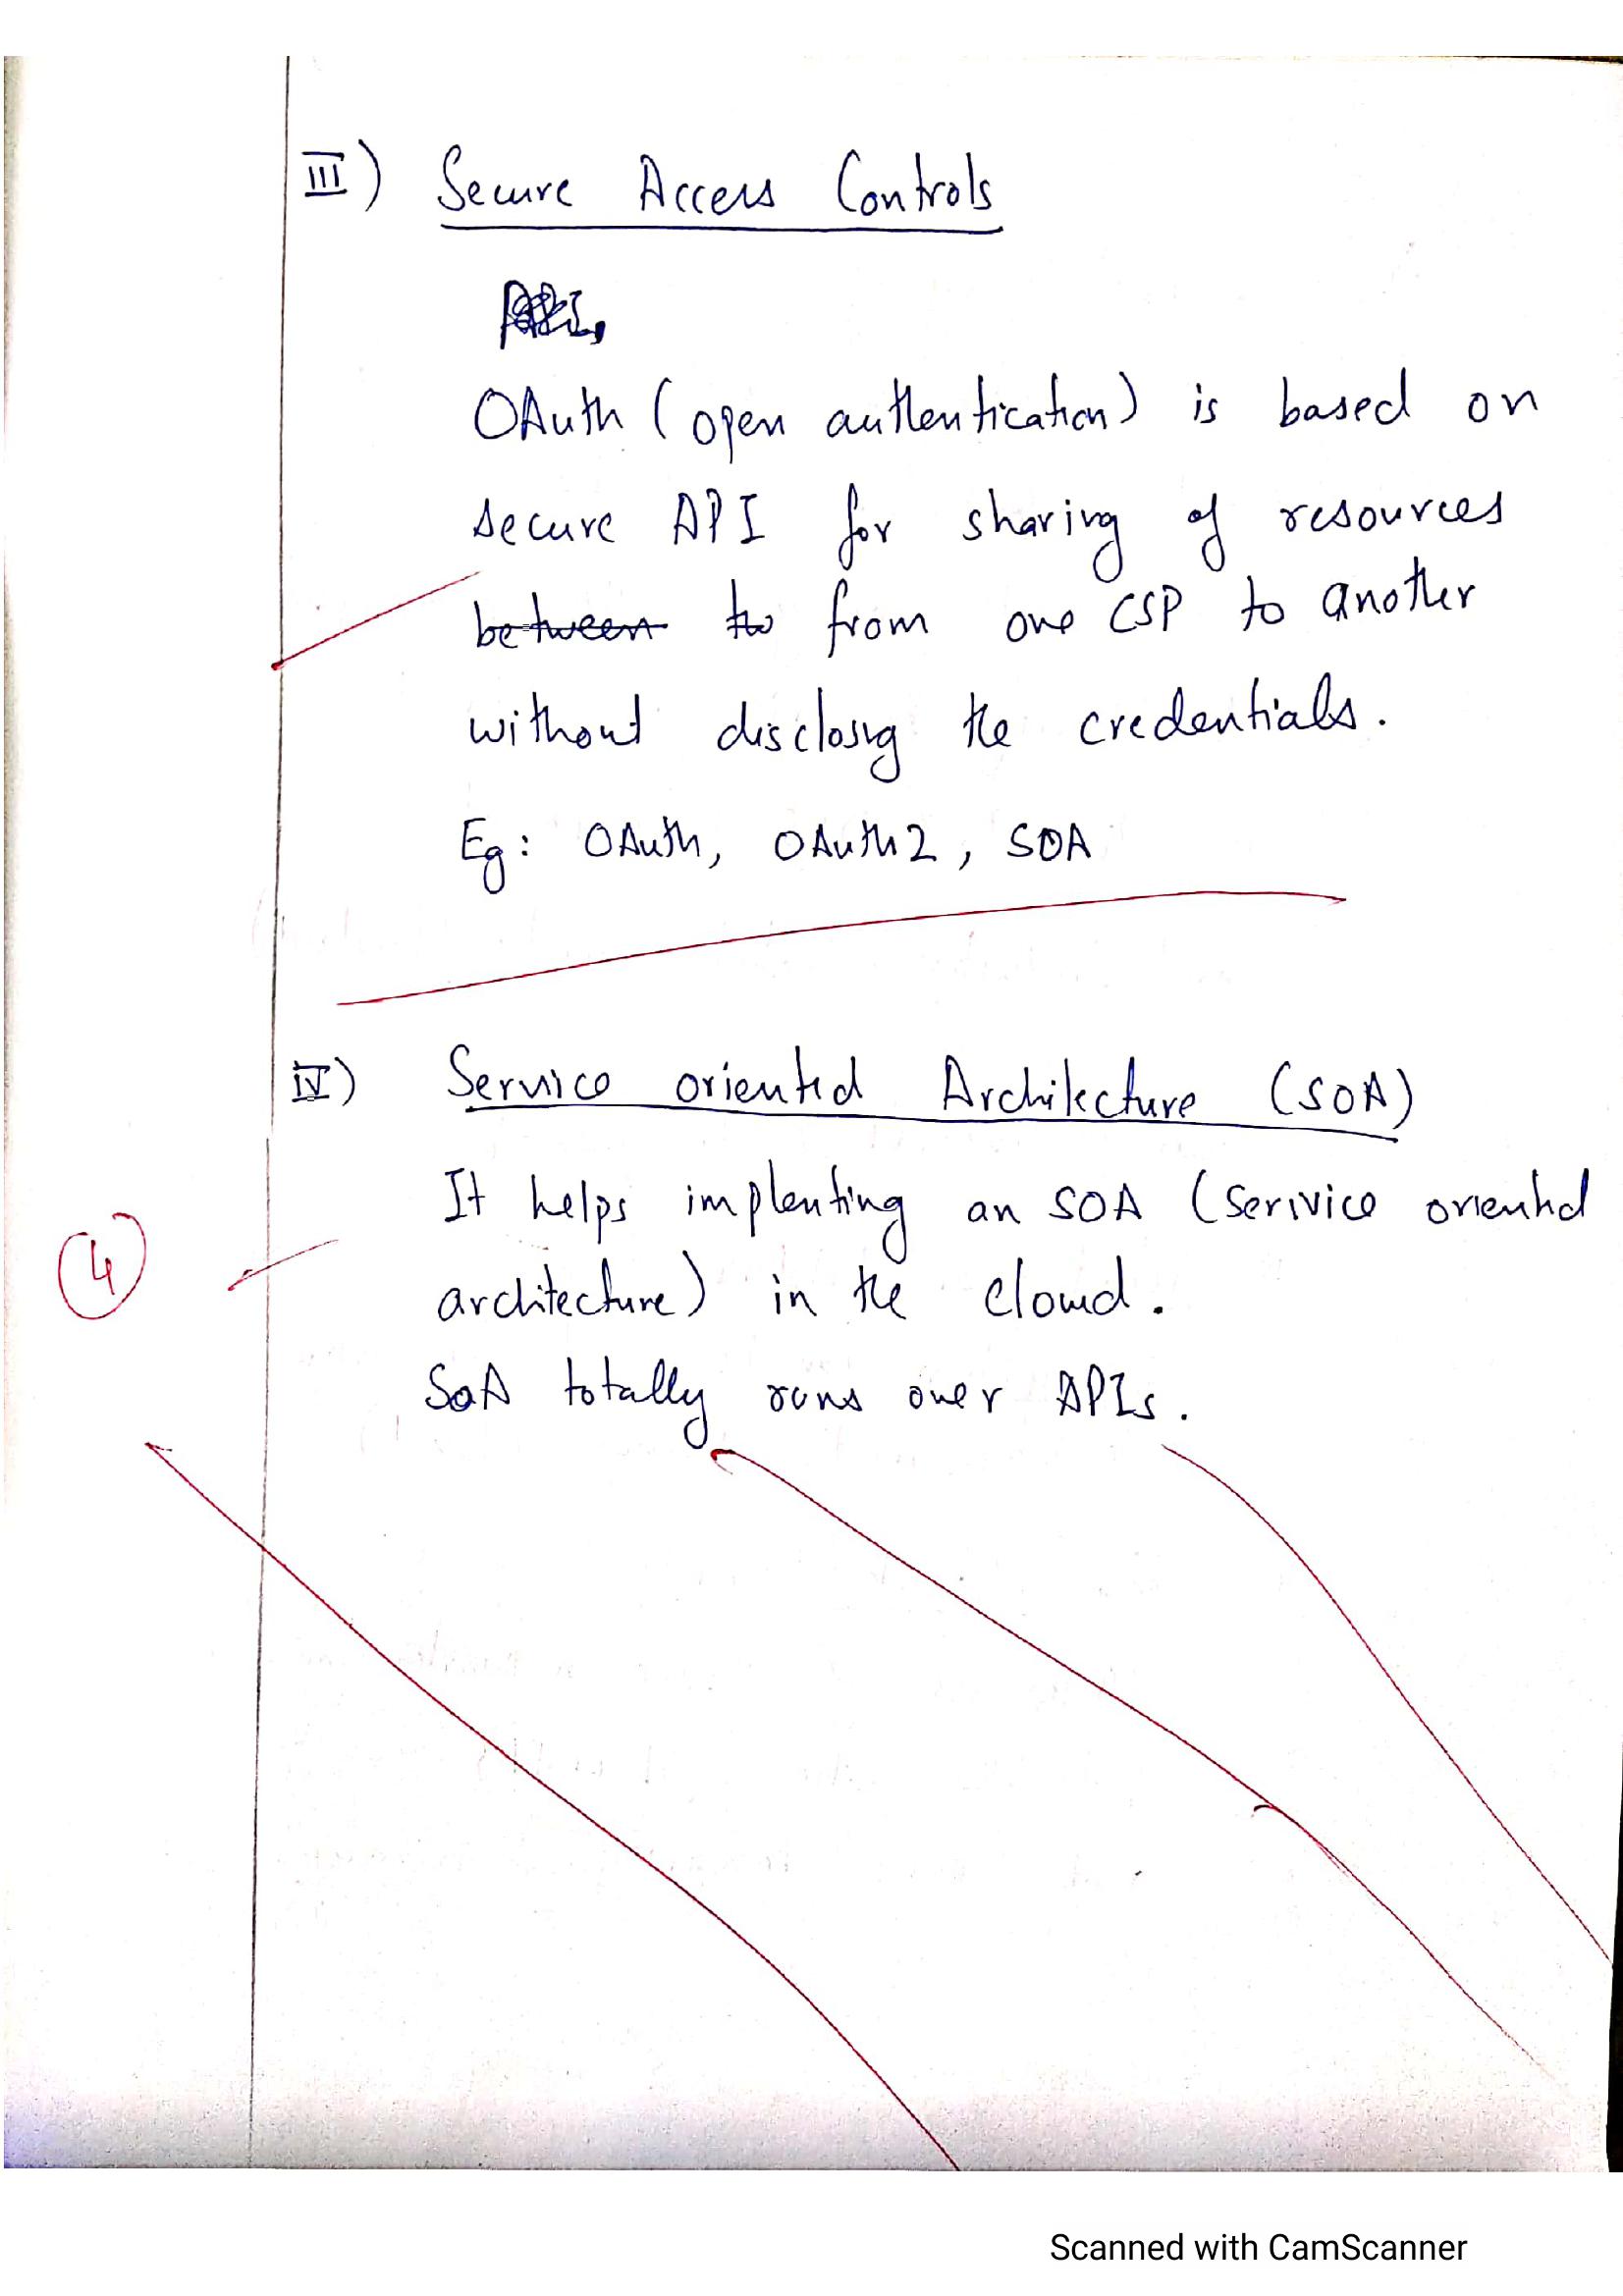 III) Secure Access Controls
OAuth (open authentication) is based on
secure API for sharing of resources
between to from one CSP to another
without disclosig the credentials.
Eg: OAuth, OAuth2, SOA
IV) Service oriented Architecture (SOA)
It helps implenting an SOA (Serivice oriented
architecture) in the cloud.
4
SOA totally runs over APIs.
Scanned with CamScanner